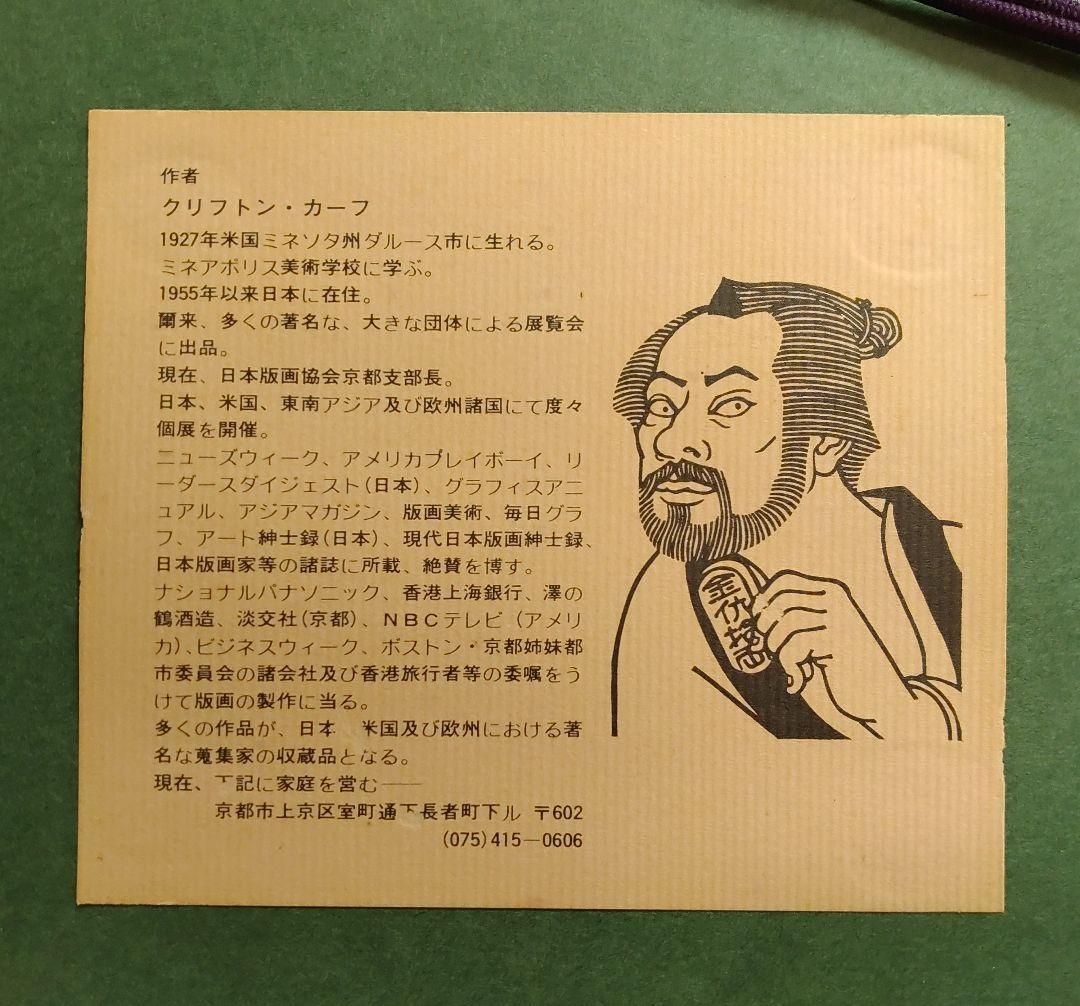 作者
クリフトン・カーフ
1927年米国ミネソタ州ダルース市に生れる。
ミネアポリス美術学校に学ぶ。
1955年以来日本に在住。
爾来、多くの著名な、大きな団体による展覧会
に出品。
現在、日本版画協会京都支部長。
日本、米国、東南アジア及び欧州諸国にて度々
個展を開催。
ニューズウィーク、アメリカプレイボーイ、リ
ーダースダイジェスト(日本)、グラフィスアニ
ュアル、アジアマガジン、版画美術、毎日グラ
フ、アート紳士録(日本)、現代日本版画紳士録、
日本版画家等の諸誌に所載、絶賛を博す。
ナショナルパナソニック、香港上海銀行、澤の
鶴酒造、淡交社(京都)、NBCテレビ(アメリ
カ)、ビジネスウィーク、ボストン・京都姉妹都
市委員会の諸会社及び香港旅行者等の委嘱をう
けて版画の製作に当る。
多くの作品が、日本 米国及び欧州における著
名な蒐集家の収蔵品となる。
現在、下記に家庭を営む——
京都市上京区室町通下長者町下ル 〒602
(075)415-0606